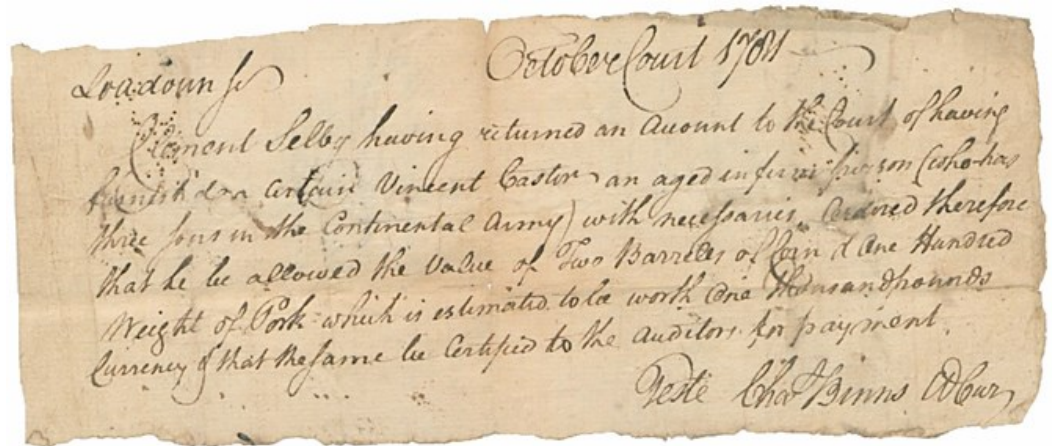 Loudoun Sc October Court 1781
Clement Selby having returned an Account to the Court of having
furnish'd a Certain Vincent Castor an aged infirm person (who has
three sons in the Continental Army) with necessaries. Ordered therefore
that he be allowed the Value of Two Barrells of Corn & One Hundred
Weight of Pork which is estimated to be worth One Thousand pounds
Currency & that the same be Certified to the Auditors for payment.
Teste Chas Binns Cl Cur